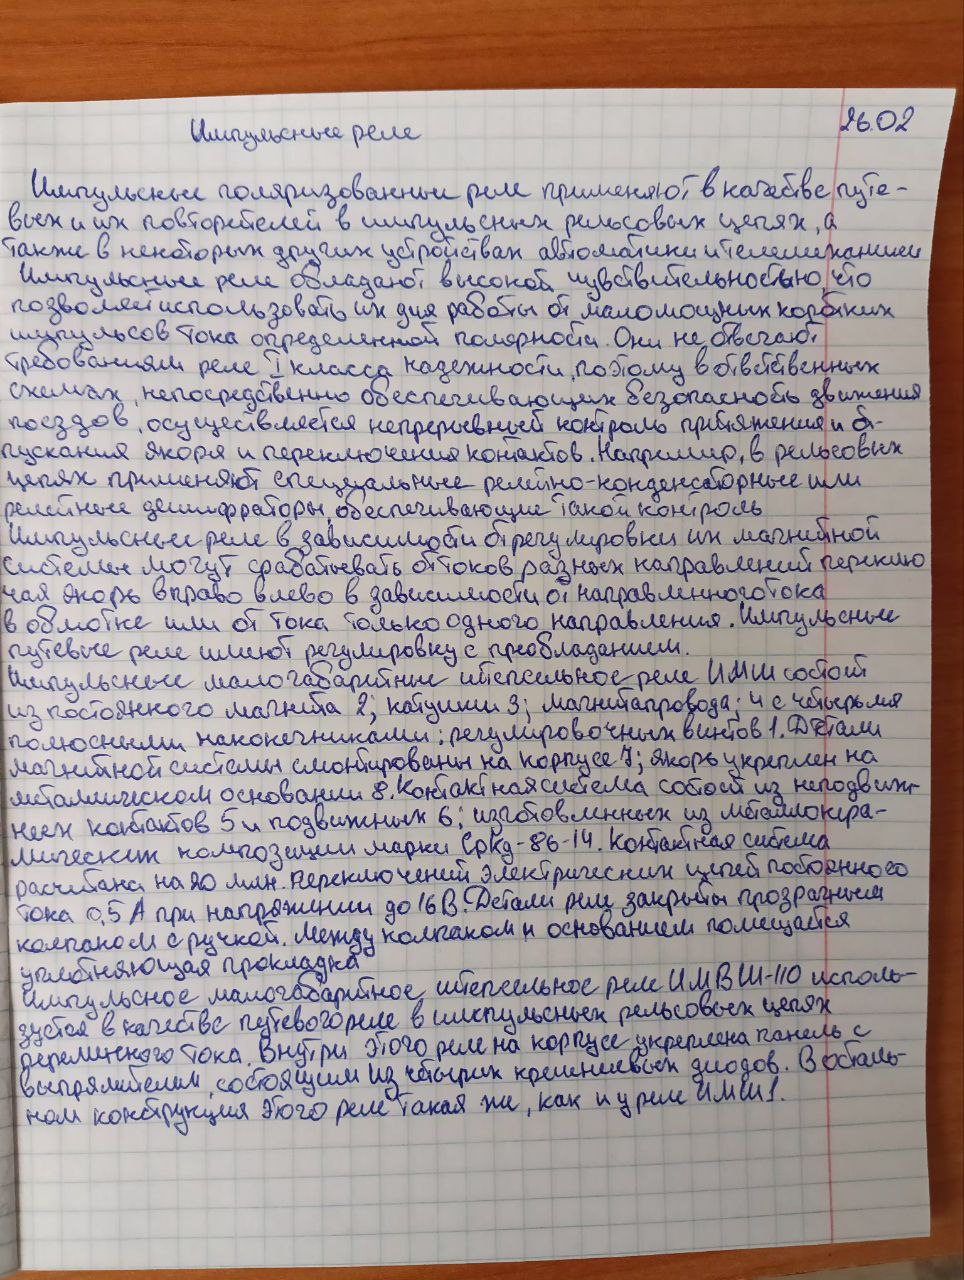 Импульсные реле
26.02
Импульсные поляризованные реле применяют в качестве путе-
вых и их повторителей в импульсных рельсовых цепях, а
также в некоторых других устройствах автоматики и телемеханики
Импульсные реле обладают высокой чувствительностью, что
позволяет использовать их для работы от маломощных коротких
импульсов тока определенной полярности. Они не отвечают
требованиям реле I класса надежности, поэтому в ответственных
схемах, непосредственно обеспечивающих безопасность движения
поездов, осуществляется непрерывный контроль притяжения и от-
пускания якоря и переключения контактов. Например, в рельсовых
цепях применяют специальные релейно-конденсаторные или
релейные дешифраторы, обеспечивающие такой контроль
Импульсные реле в зависимости от регулировки их магнитной
системы могут срабатывать от токов разных направлений переклю
чая якорь вправо влево в зависимости от направленного тока
в обмотке или от тока только одного направления. Импульсные
путевые реле имеют регулировку с преобладанием.
Импульсные малогабаритные штепсельное реле ИМШ состоит
из постоянного магнита 2; катушки 3; магнитапровода; 4 с четырьмя
полюсными наконечниками; регулировочных винтов 1. Детали
магнитной системы смонтированы на корпусе 7; якорь укреплен на
металлическом основании 8. Контактная система состоит из неподвиж-
ных контактов 5 и подвижных 6; изготовленных из металлокера-
мических композиции марки СрКд-86-14. Контактная система
расчитана на 20 млн. переключений электрических цепей постоянного
тока 0,5 А при напряжении до 16 В. Детали реле закрыты прозрачным
колпаком с ручкой. Между колпаком и основанием помещается
уплотняющая прокладка
Импульсное малогабаритное штепсельное реле ИМВШ-110 исполь-
зуется в качестве путевого реле в импульсных рельсовых цепях
переменного тока. Внутри этого реле на корпусе укреплена панель с
выпрямителем, состоящим из четырех кремниевых диодов. В осталь-
ном конструкция этого реле такая же, как и у реле ИМШ1.